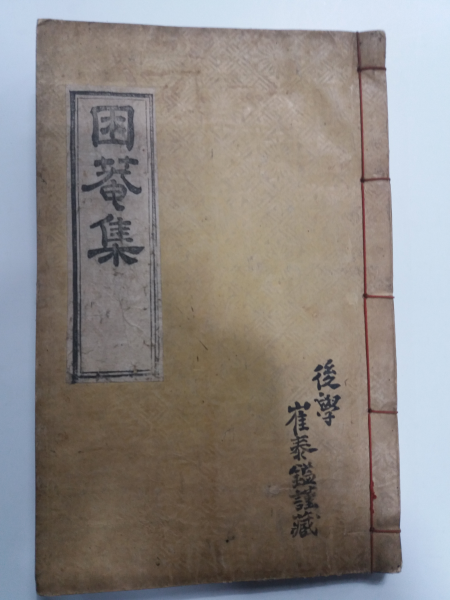 困菴集
後學
崔泰鎰謹藏